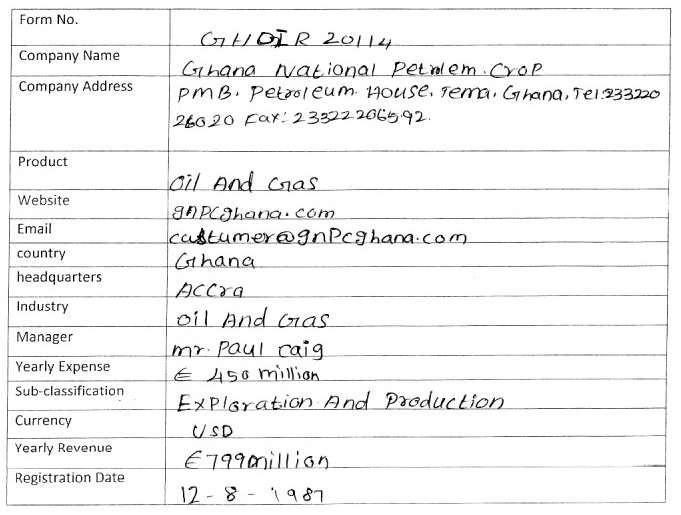 Form No.
GHDIR 20114
Company Name
Ghana National Petrolem. Crop
Company Address
PMB. Petroleum. House. Tema. Ghana, Tel:233220
26020 Fax: 23322206592.
Product
Oil And Gas
Website
gnpcghana.com
Email
custumer@gnpcghana.com
country
Ghana
headquarters
Accra
Industry
oil And Gas
Manager
mr. Paul raig
Yearly Expense
€ 450 million
Sub-classification
Exploration And Production
Currency
USD
Yearly Revenue
€799million
Registration Date
12 - 8 - 1987